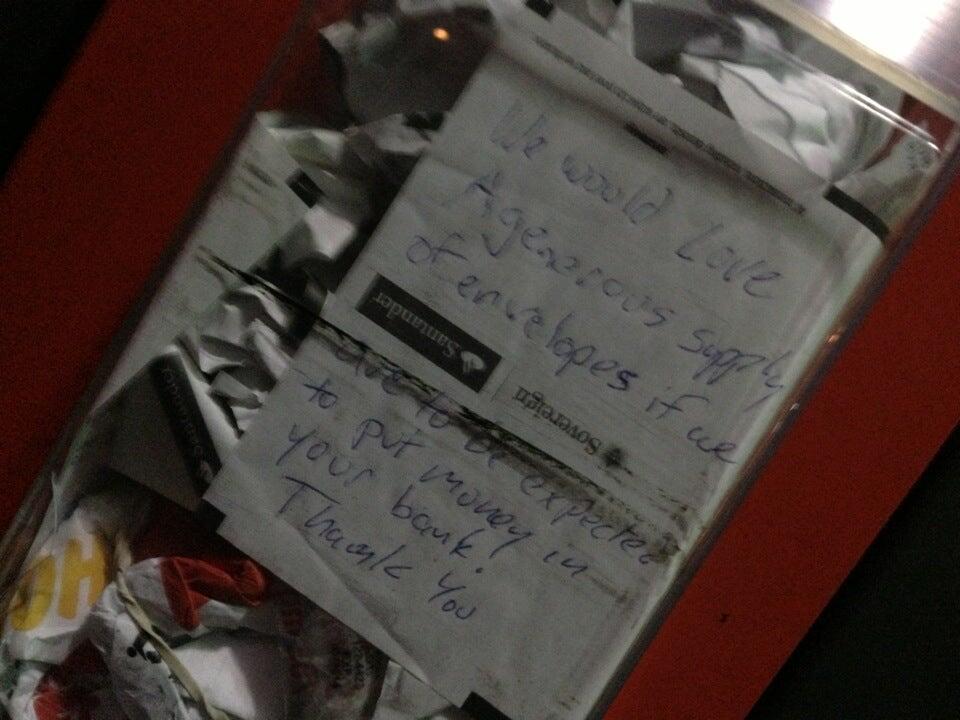 We would Love
A generous supply
of envelopes if we
Santander
Sovereign
are to be expected
to put money in
your bank.
Thank You
Santander
HO